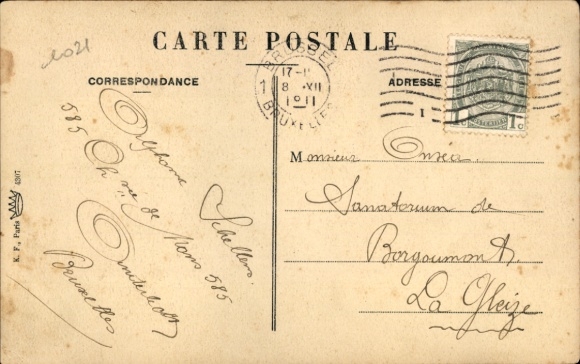 1021
CARTE POSTALE
CORRESPONDANCE
ADRESSE
BRUSSEL
17-
8 XII
1911
BRUXELLES
1
1
1c
Alphonse Schellens
585 Ch ée de Mons 585
Anderlecht
Bruxelles
Monsieur
Sanatorium de
Borgoumont
La Gleize
K. F., Paris 4307